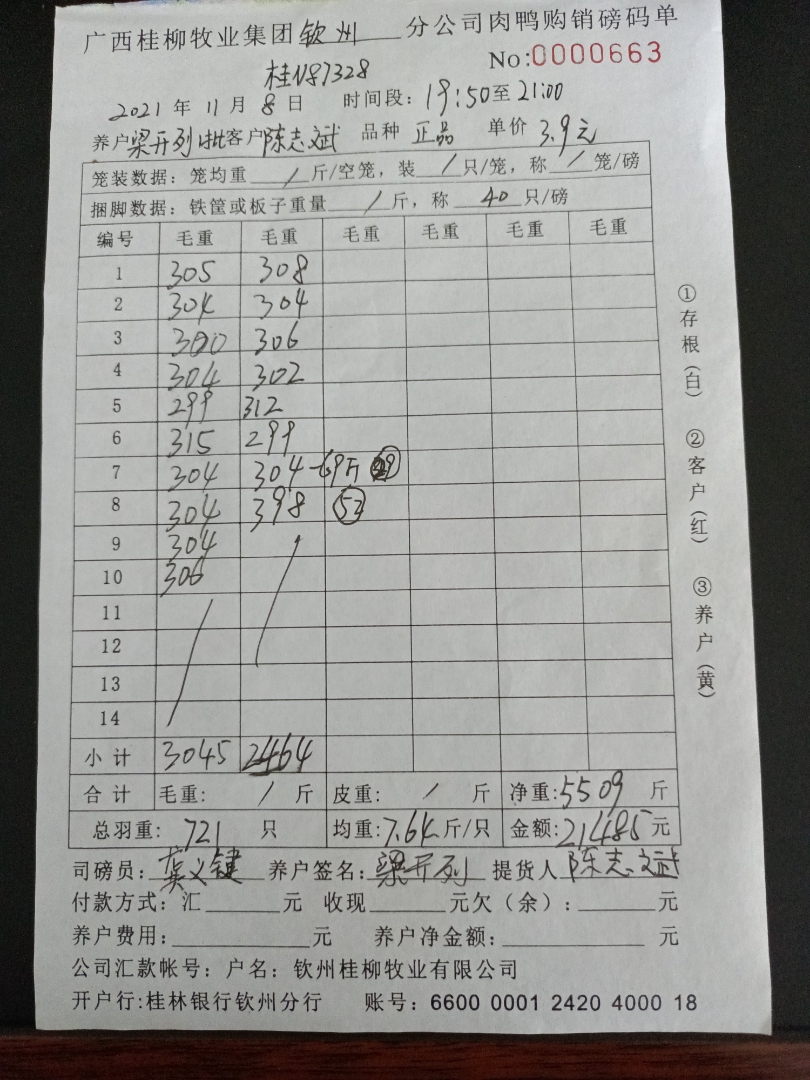 广西桂柳牧业集团钦州分公司肉鸭购销磅码单
No:0000663
桂N87328
2021年11月8日 时间段:19:50至21:00
养户梁开列1批客户陈志斌 品种 正品 单价 3.9元
笼装数据:笼均重 / 斤/空笼,装 / 只/笼,称 / 笼/磅
捆脚数据:铁筐或板子重量 / 斤,称 40 只/磅
编号 毛重 毛重 毛重 毛重 毛重 毛重
1 305 308
2 304 304
3 300 306
4 304 302
5 299 312
6 315 299
7 304 304 -69斤
8 304 398 53
9 304
10 306
11
12
13
14
小计 3045 2464
合计 毛重: / 斤 皮重: / 斤 净重:5509 斤
总羽重:721 只 均重:7.64斤/只 金额:21485元
司磅员:龚义键 养户签名:梁开列 提货人 陈志斌
付款方式:汇 元 收现 元欠(余): 元
养户费用: 元 养户净金额: 元
公司汇款帐号:户名:钦州桂柳牧业有限公司
开户行:桂林银行钦州分行 账号:6600 0001 2420 4000 18
①存根(白) ②客户(红) ③养户(黄)